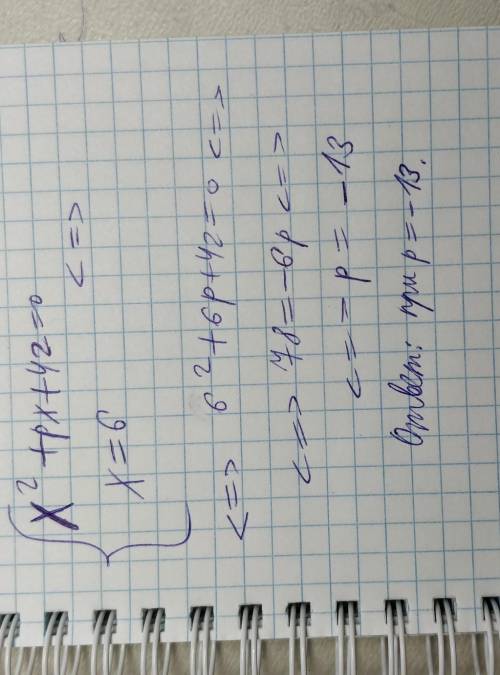 x² + px + 42 = 0
x = 6 <=>
<=> 6² + 6p + 42 = 0 <=>
<=> 78 = -6p <=>
<== p = -13
Ответ: при p = -13.